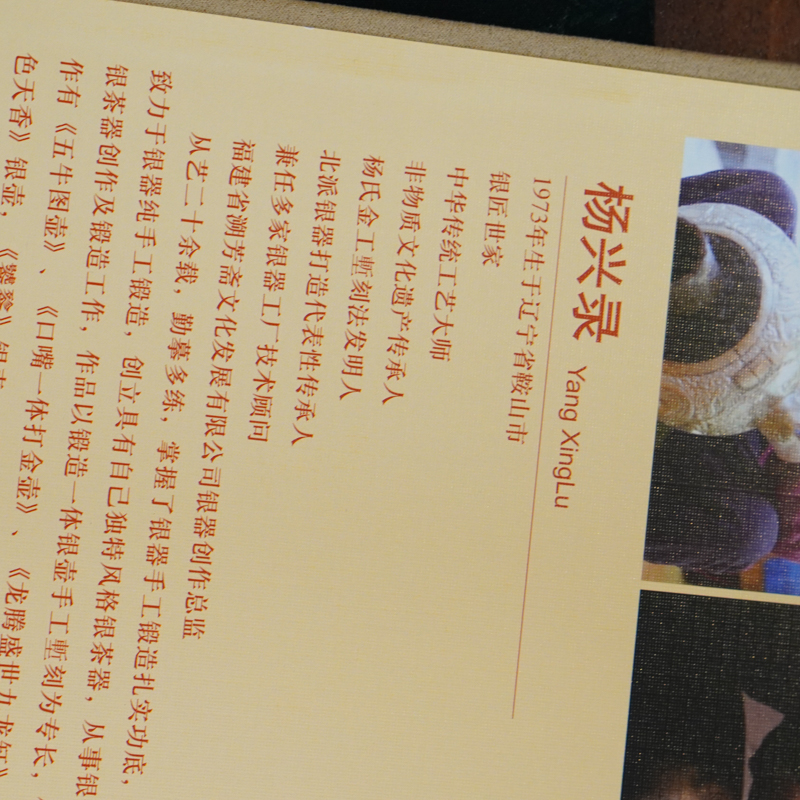 杨兴录 Yang XingLu
1973年生于辽宁省鞍山市
银匠世家
中华传统工艺大师
非物质文化遗产传承人
杨氏金工堑刻法发明人
北派银器打造代表性传承人
兼任多家银器工厂技术顾问
福建省溯芳斋文化发展有限公司银器创作总监
从艺二十余载，勤慕多练，掌握了银器手工锻造扎实功底，
致力于银器纯手工锻造，创立具有自己独特风格银茶器，从事银
银茶器创作及锻造工作，作品以锻造一体银壶手工堑刻为专长，
作有《五牛图壶》、《口嘴一体打金壶》、《龙腾盛世九龙缸》
色天香》银壶，《饕餮》银壶